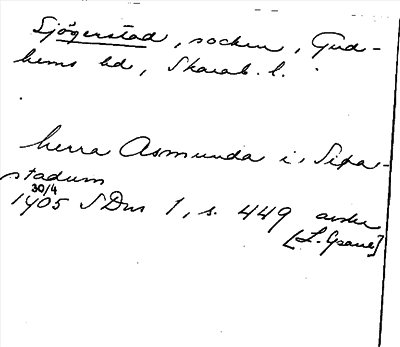 Sjögerstad, socken, Gud-
hems hd, Skarab. l.
herra Asmunda i, Sipa-
stadum
30/4
1405 SDns 1, s. 449 avskr
[L. Gpane]